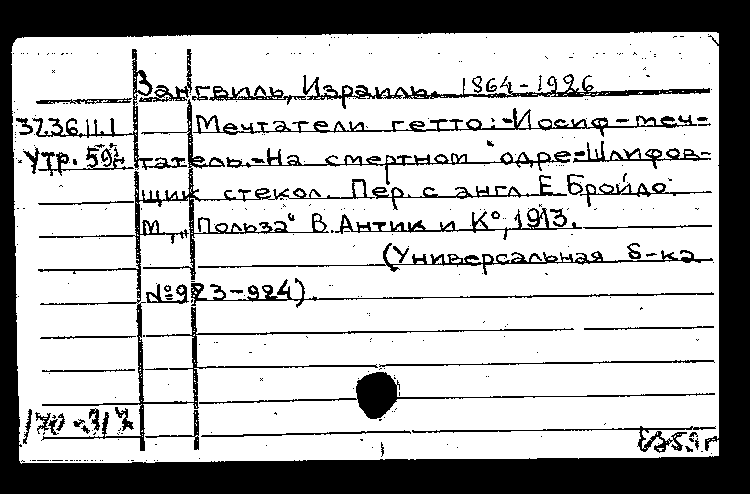 Зангвиль, Израиль. 1864-1926
37.36.11.1 Мечтатели гетто:-Иосиф-меч-
Утр. 59г. татель.-На смертном одре-Шлифов-
щик стекол. Пер. с англ. Е. Бройдо.
М., „Польза“ В. Антик и К°, 1913.
(Универсальная б-ка
№923-924).